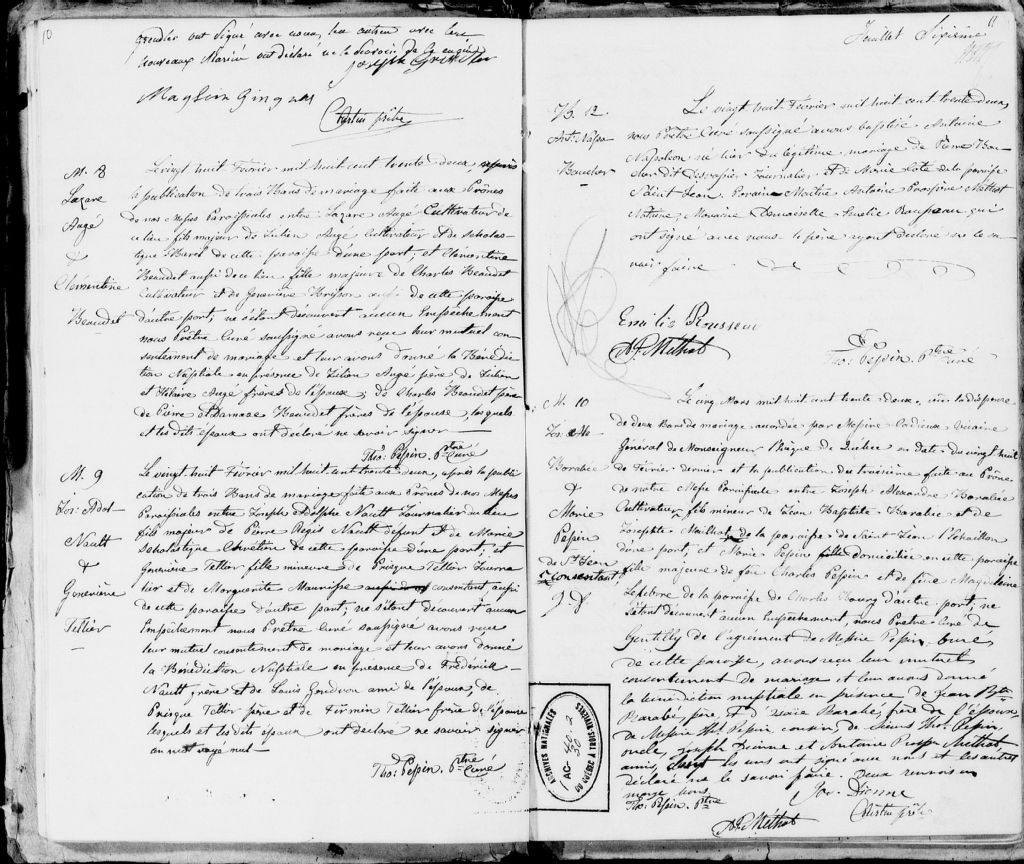 10
ont Signé avec nous, les autres avec les
nouveaux Mariés ont déclaré ne le Savoir de ce enquis
Joseph
Magloir Gingras
ptre
M. 8
Lazare
Augé
&
Clémentine
Beaudet
Le vingt huit Février mil huit cent trente deux, après
la publication de trois Bans de mariage faite aux Prônes
de nos Messes Paroissiales entre Lazare Augé Cultivateur de
ce lieu fils majeur de Julien Augé Cultivateur & de Scholas-
tique Baril de cette paroisse d'une part; et Clémentine
Beaudet aussi de ce lieu fille majeure de Charles Beaudet
Cultivateur et de Geneviève aussi de cette paroisse
d'autre part, ne s'étant découvert aucun Empêchement
nous Prêtre Curé soussigné avons reçu leur mutuel con-
sentement de mariage et leur avons donné la Bénédic-
tion Nuptiale en présence de Julien Augé père de
et Hilaire Augé frères de l'époux; de Charles Beaudet père
de Pierre et Damase Beaudet frères de l'épouse, lesquels
et les dits époux ont déclaré ne savoir signer
Tho: Pepin, Ptre Curé
M. 9
Jos: Adol-
Nault
&
Geneviève
Tellier
Le vingt huit Février mil huit cent trente deux, après la publi
cation de trois Bans de mariage faite aux Prônes de nos Messes
Paroissiales entre Joseph Adolphe Nault Journalier de ce lieu
fils majeur de Pierre Régis Nault défunt & de Marie
Scholastique Chrétien de cette paroisse d'une part, et
Geneviève Tellier fille mineure de Prisque Tellier Journa
lier et de Marguerite consentant aussi
de cette paroisse d'autre part, ne s'étant découvert aucun
Empêchement nous Prêtre Curé soussigné avons reçu
leur mutuel consentement de mariage et leur avons donné
la Bénédiction Nuptiale en présence de Fréderick
Nault frère et de Louis ami de l'époux, de
Prisque Tellier père et de Firmin Tellier frère de l'épouse
lesquels et les dits époux ont déclaré ne savoir signer
un mot rayé nul
Tho: Pepin, Ptre Curé
11
Feuillet Sixième
B. 12
Ant: Napo
Boucher
Le vingt huit Février mil huit cent trente deux,
nous Prêtre Curé soussigné avons baptisé Antoine
Napoléon né hier du légitime mariage de Pierre Bou
cher dit Desrosier Journalier & de Marie Cote de la paroisse
Saint Jean. Parain Maître Antoine Prospère Méthot
Notaire; Maraine Demoiselle Emélie Rousseau qui
ont signé avec nous le père ayant déclaré ne le sa
voir faire
Emilie Rousseau
A P Méthot
Tho: Pepin, Ptre Curé
M. 10
Jos: Al
Barabée
&
Marie
Pepin
de St Jean
consentant
Le cinq Mars mil huit cent trente-deux, vu la dispense
de deux Bans de mariage accordée par Messire Cadieux Vicaire
Général de Monseigneur l'Evêque de Québec en date du vingt huit
de Février dernier et la publication du troisième faite au Prône
de notre Messe Paroissiale entre Joseph Alexandre Barabée
Cultivateur, fils mineur de Jean Baptiste Barabée et de
Josephte Mailhot de la paroisse de Saint Jean Deschaillon
d'une part, et Marie Pepin domiciliée en cette paroisse
fille majeure de feu Charles Pepin et de feue Magdeleine
Lefebvre de la paroisse de Charles Bourg d'autre part; ne
s'étant découvert aucun Empêchement, nous Prêtre Curé de
Gentilly de l'agrément de Messire Pepin, Curé
de cette paroisse, avons reçu leur mutuel
consentement de mariage et leur avons donné
la bénédiction nuptiale en présence de Jean Bte
Barabé, père, & d'Isaïe Barabé, frère de l'époux
de Messire Tho: Pepin cousin, de Tho: Pepin
oncle, Joseph Dionne et Antoine Prosper Méthot
amis, les uns ont signé avec nous et les autres
déclaré ne le savoir faire. Deux renvois en
marge bons.
Tho: Pepin, Ptre
Jos. Dionne
A P Méthot
ptre
ARCHIVES NATIONALES
DU QUÉBEC À TROIS-RIVIÈRES